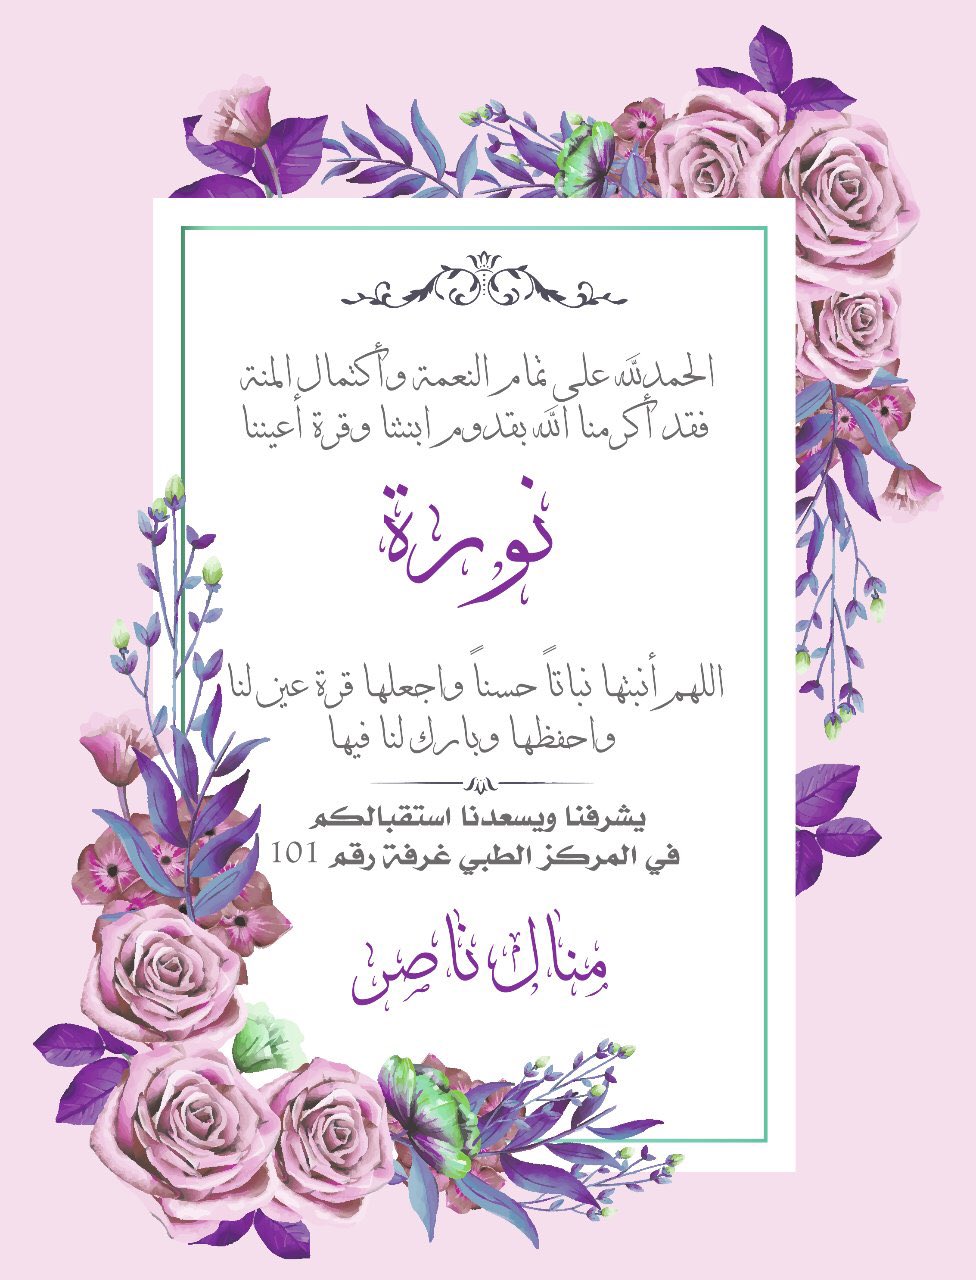 الحمدلله على تمام النعمة وأكتمال المنة
فقد أكرمنا الله بقدوم ابنتنا وقرة أعيننا
نورة
اللهم أنبتها نباتاً حسناً واجعلها قرة عين لنا
واحفظها وبارك لنا فيها
يشرفنا ويسعدنا استقبالكم
في المركز الطبي غرفة رقم 101
منال ناصر